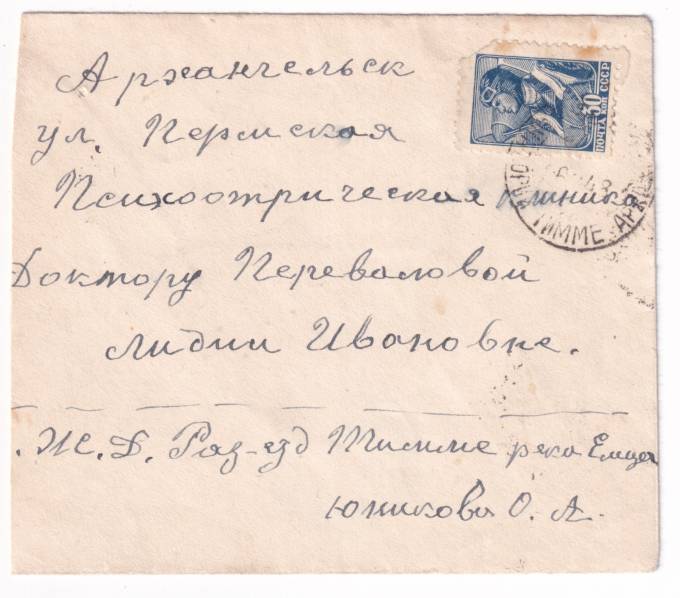 Архангельск
ул. Пермская
Психоотрическая клиника
Доктору Переваловой
Лидии Ивановне.
. Ж. Д. Раз-езд Тимме река Емца
Юникова О. А.
30
ПОЧТА КОП СССР
ТИММЕ АРХ